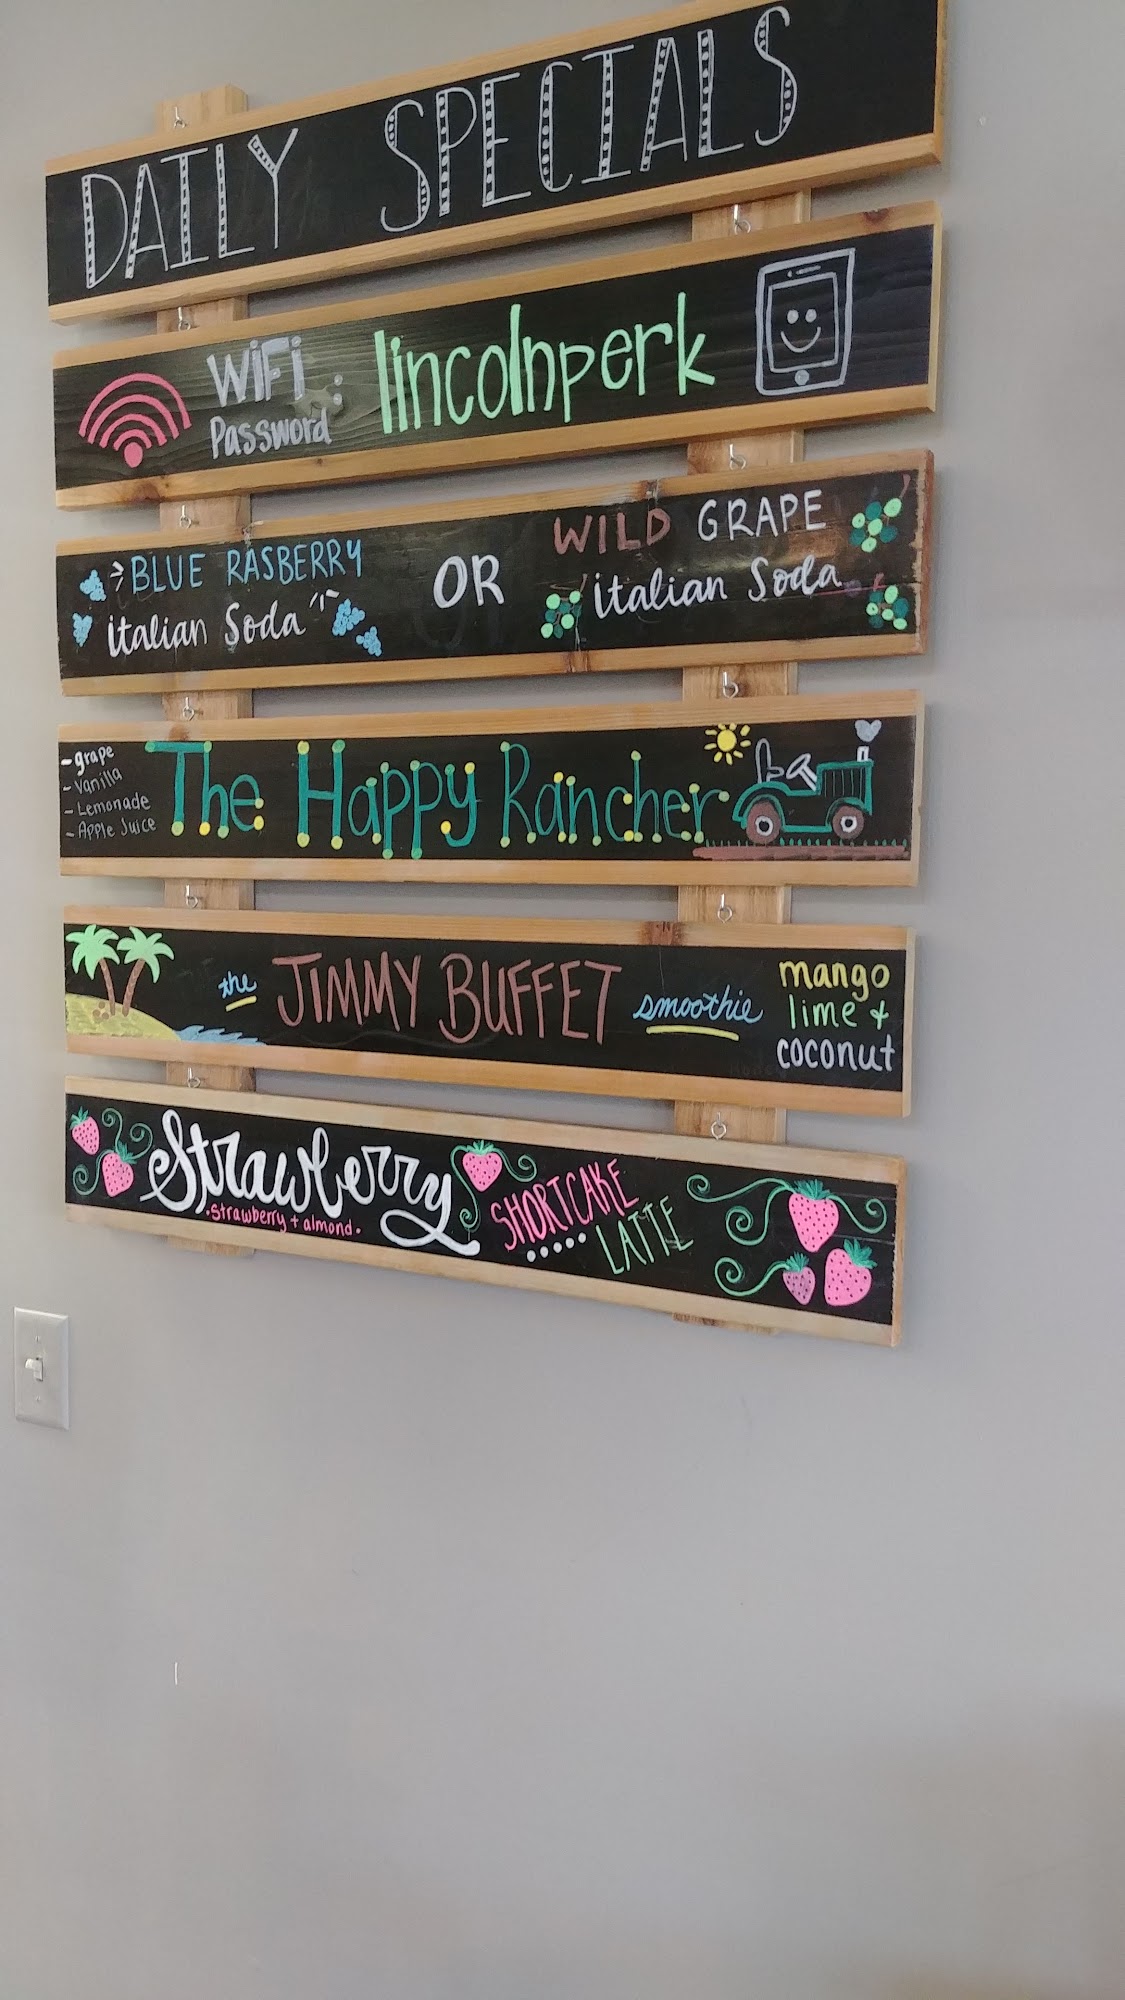 DAILY SPECIALS
WiFi Password: lincolnperk
BLUE RASBERRY
italian Soda
OR
WILD GRAPE
italian Soda
- grape
- Vanilla
- Lemonade
- Apple Juice
The Happy Rancher
the JIMMY BUFFET smoothie
mango
lime +
coconut
Strawberry
• Strawberry + almond •
SHORTCAKE
LATTE